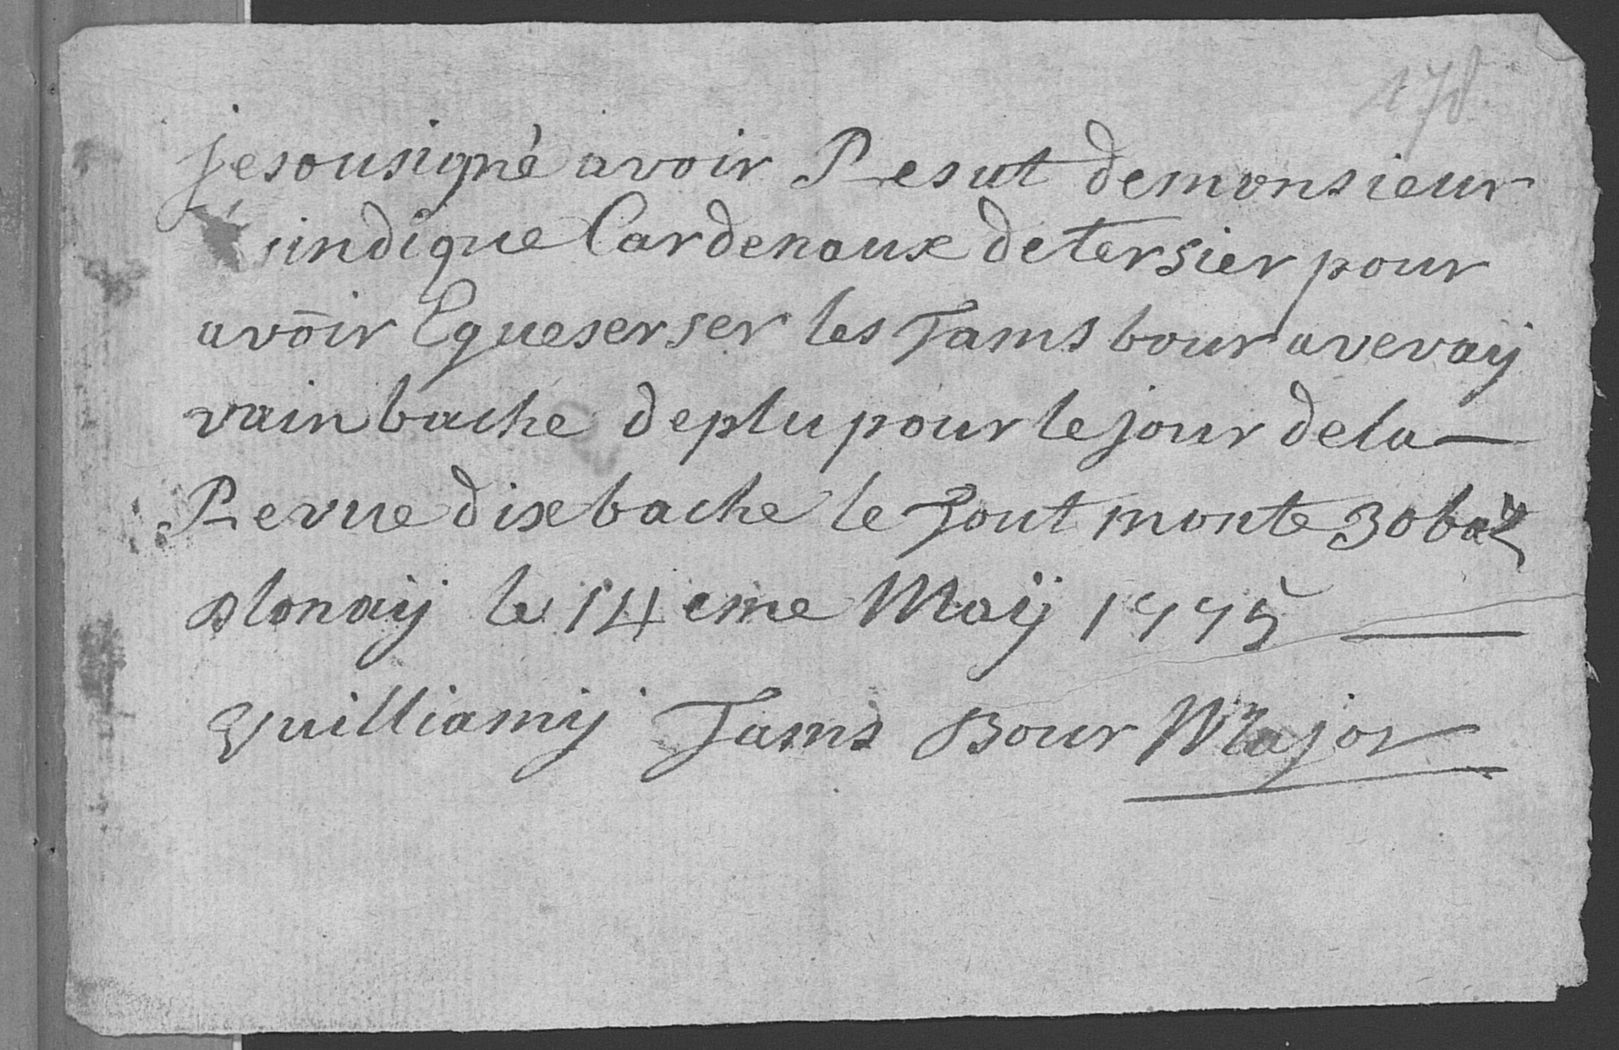 178.
je sousigné avoir Resut de monsieur
sindique Cardenaux de tersier pour
avoir Egueserser les Tams bour a vevay
vain bache de plu pour le jour de la
Revue dix bache le Tout monte 30 baz
Blonay le 14 eme Maÿ 1775
Vuilliamij Tams Bour Major